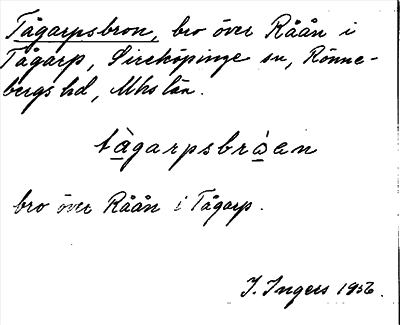 Tågarpsbron, bro över Råån i
Tågarp, Sireköpinge sn, Rönne-
bergs hd, Mhs län.
tàgarpsbròen
bro över Råån i Tågarp.
I. Ingers 1956.